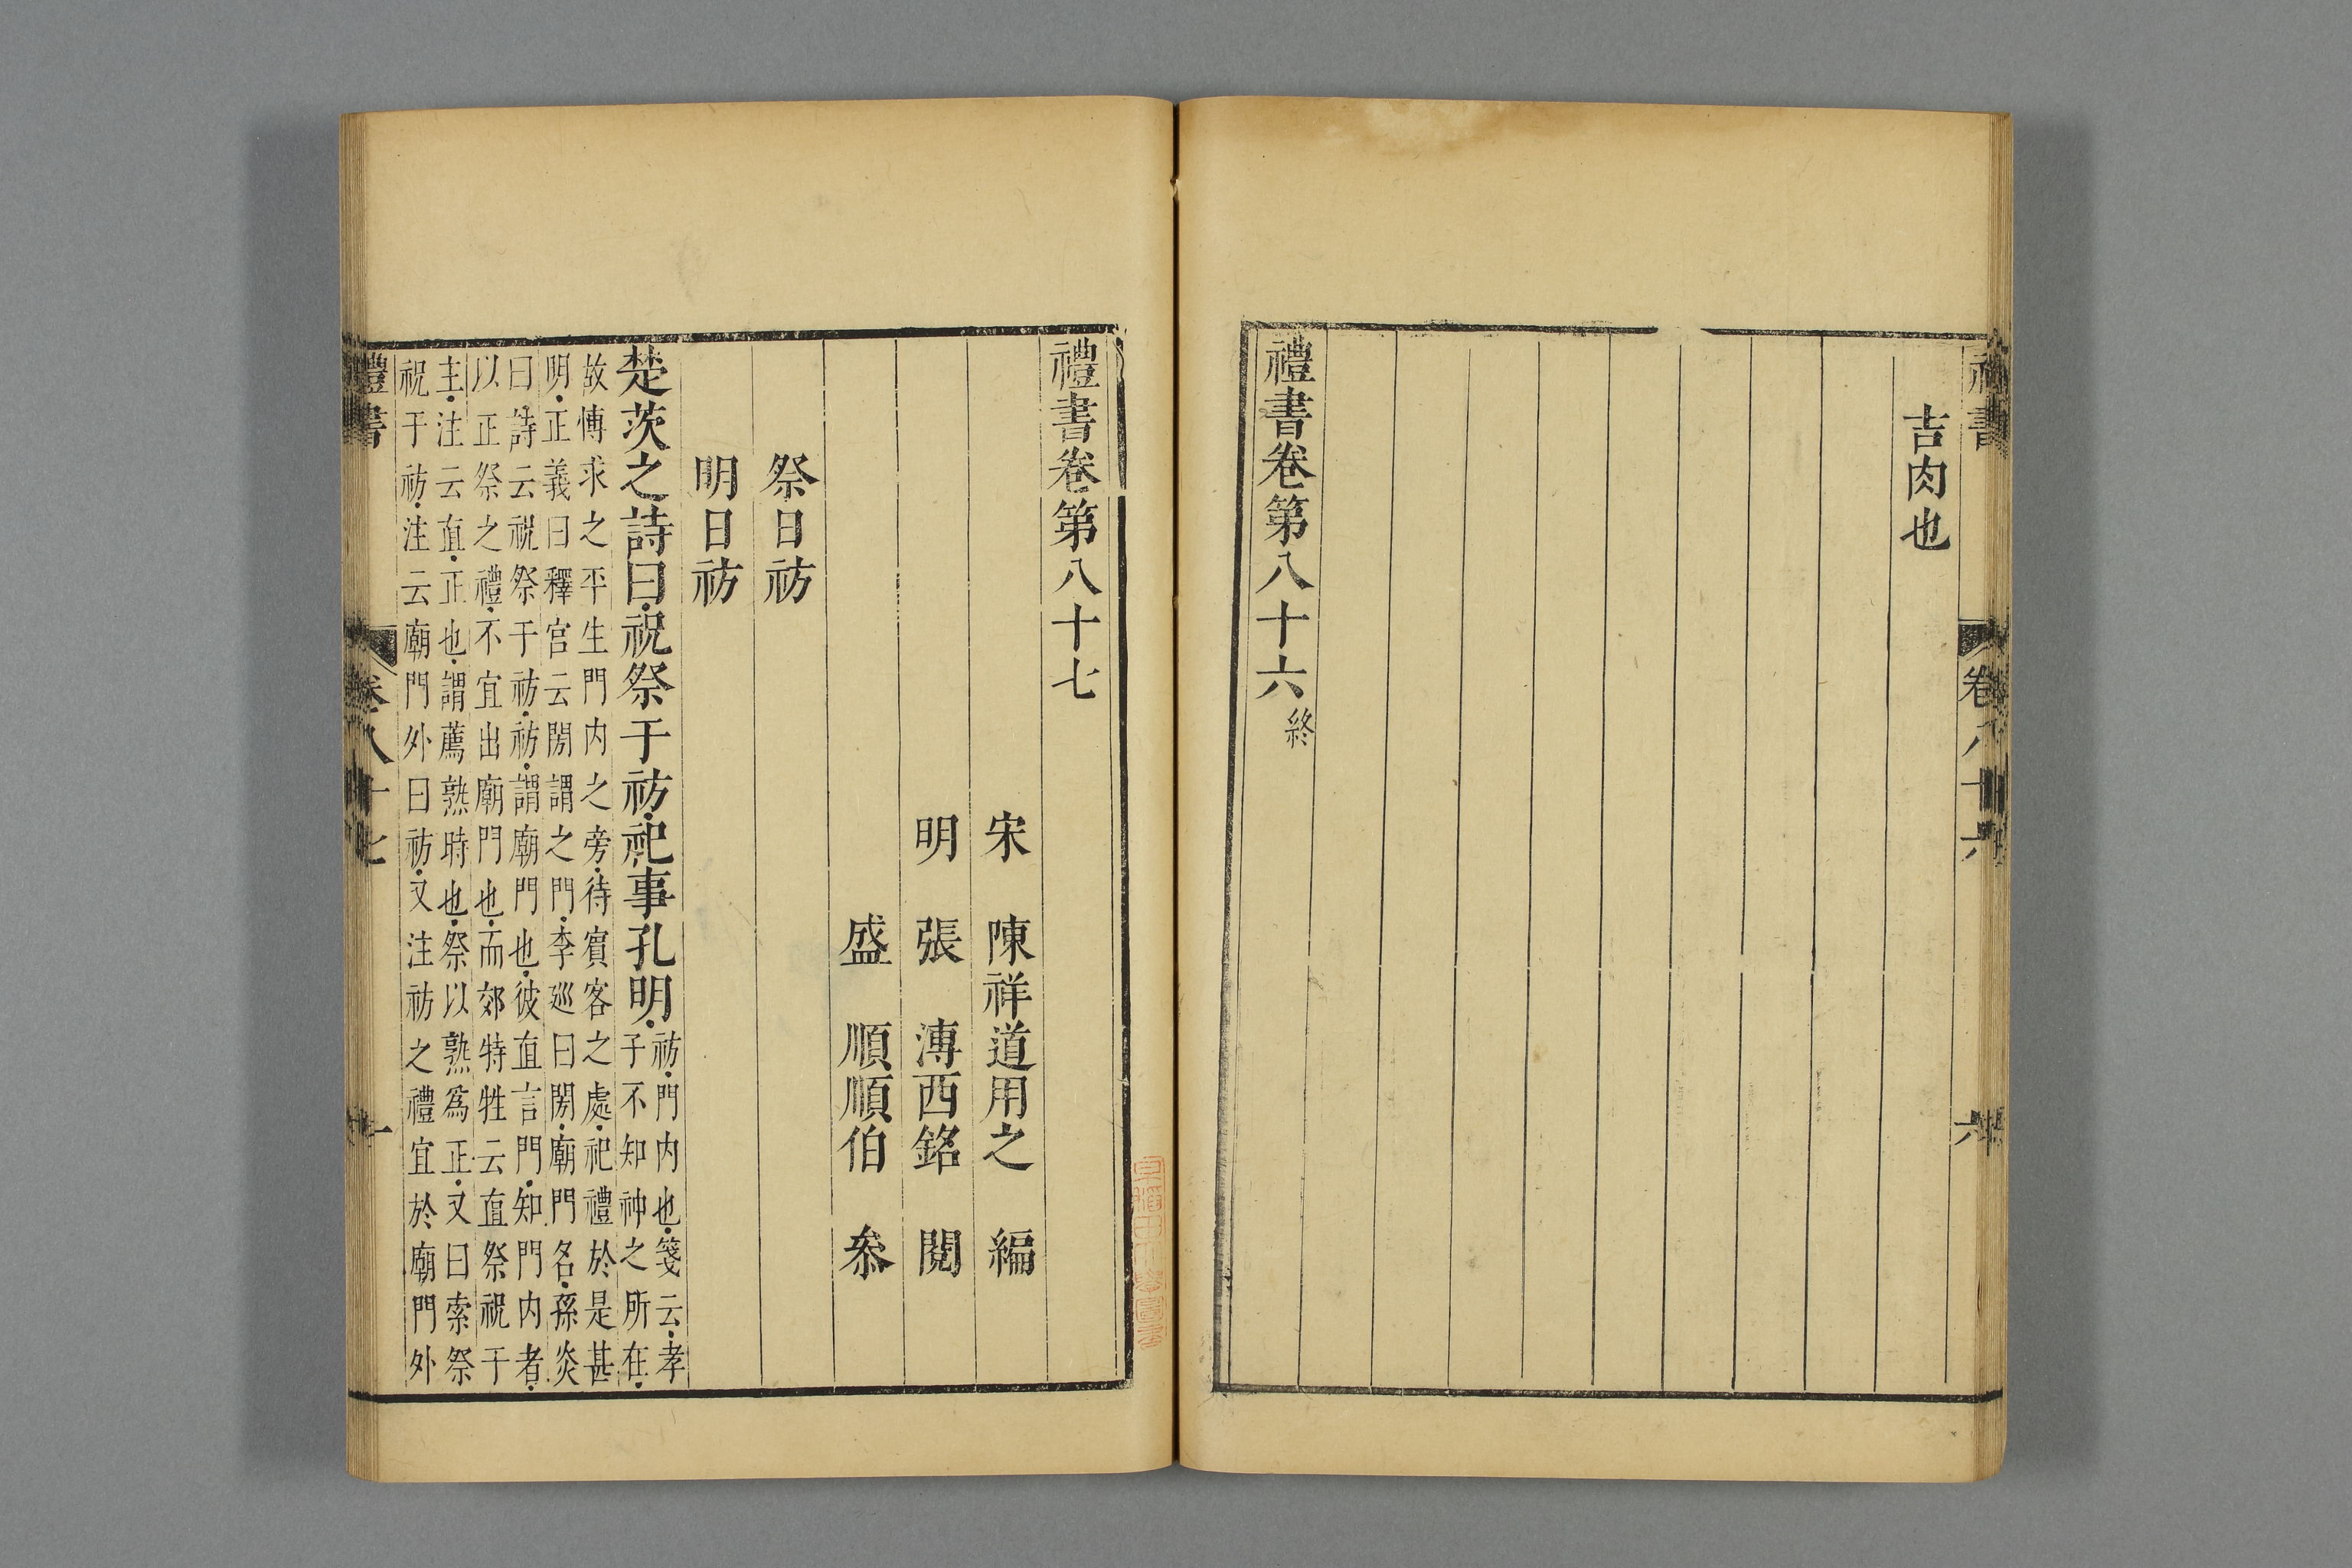 禮書
卷八十六
六
吉肉也
禮書卷第八十六終
禮書卷第八十七
宋 陳祥道用之 編
明 張 溥西銘 閱
盛 順順伯 叅
祭日祊
明日祊
楚茨之詩曰祝祭于祊祀事孔明祊門内也箋云孝
子不知神之所在
故愽求之平生門内之旁待賔客之處祀禮於是甚
明正義曰釋宫云閍謂之門李廵曰閍廟門名孫炎
曰詩云祝祭于祊祊謂廟門也彼直言門知門内者
以正祭之禮不宜出廟門也而郊特牲云直祭祝于
主注云直正也謂薦熟時也祭以熟為正又曰索祭
祝于祊注云廟門外曰祊又注祊之禮宜於廟門外
禮書
卷八十七
一